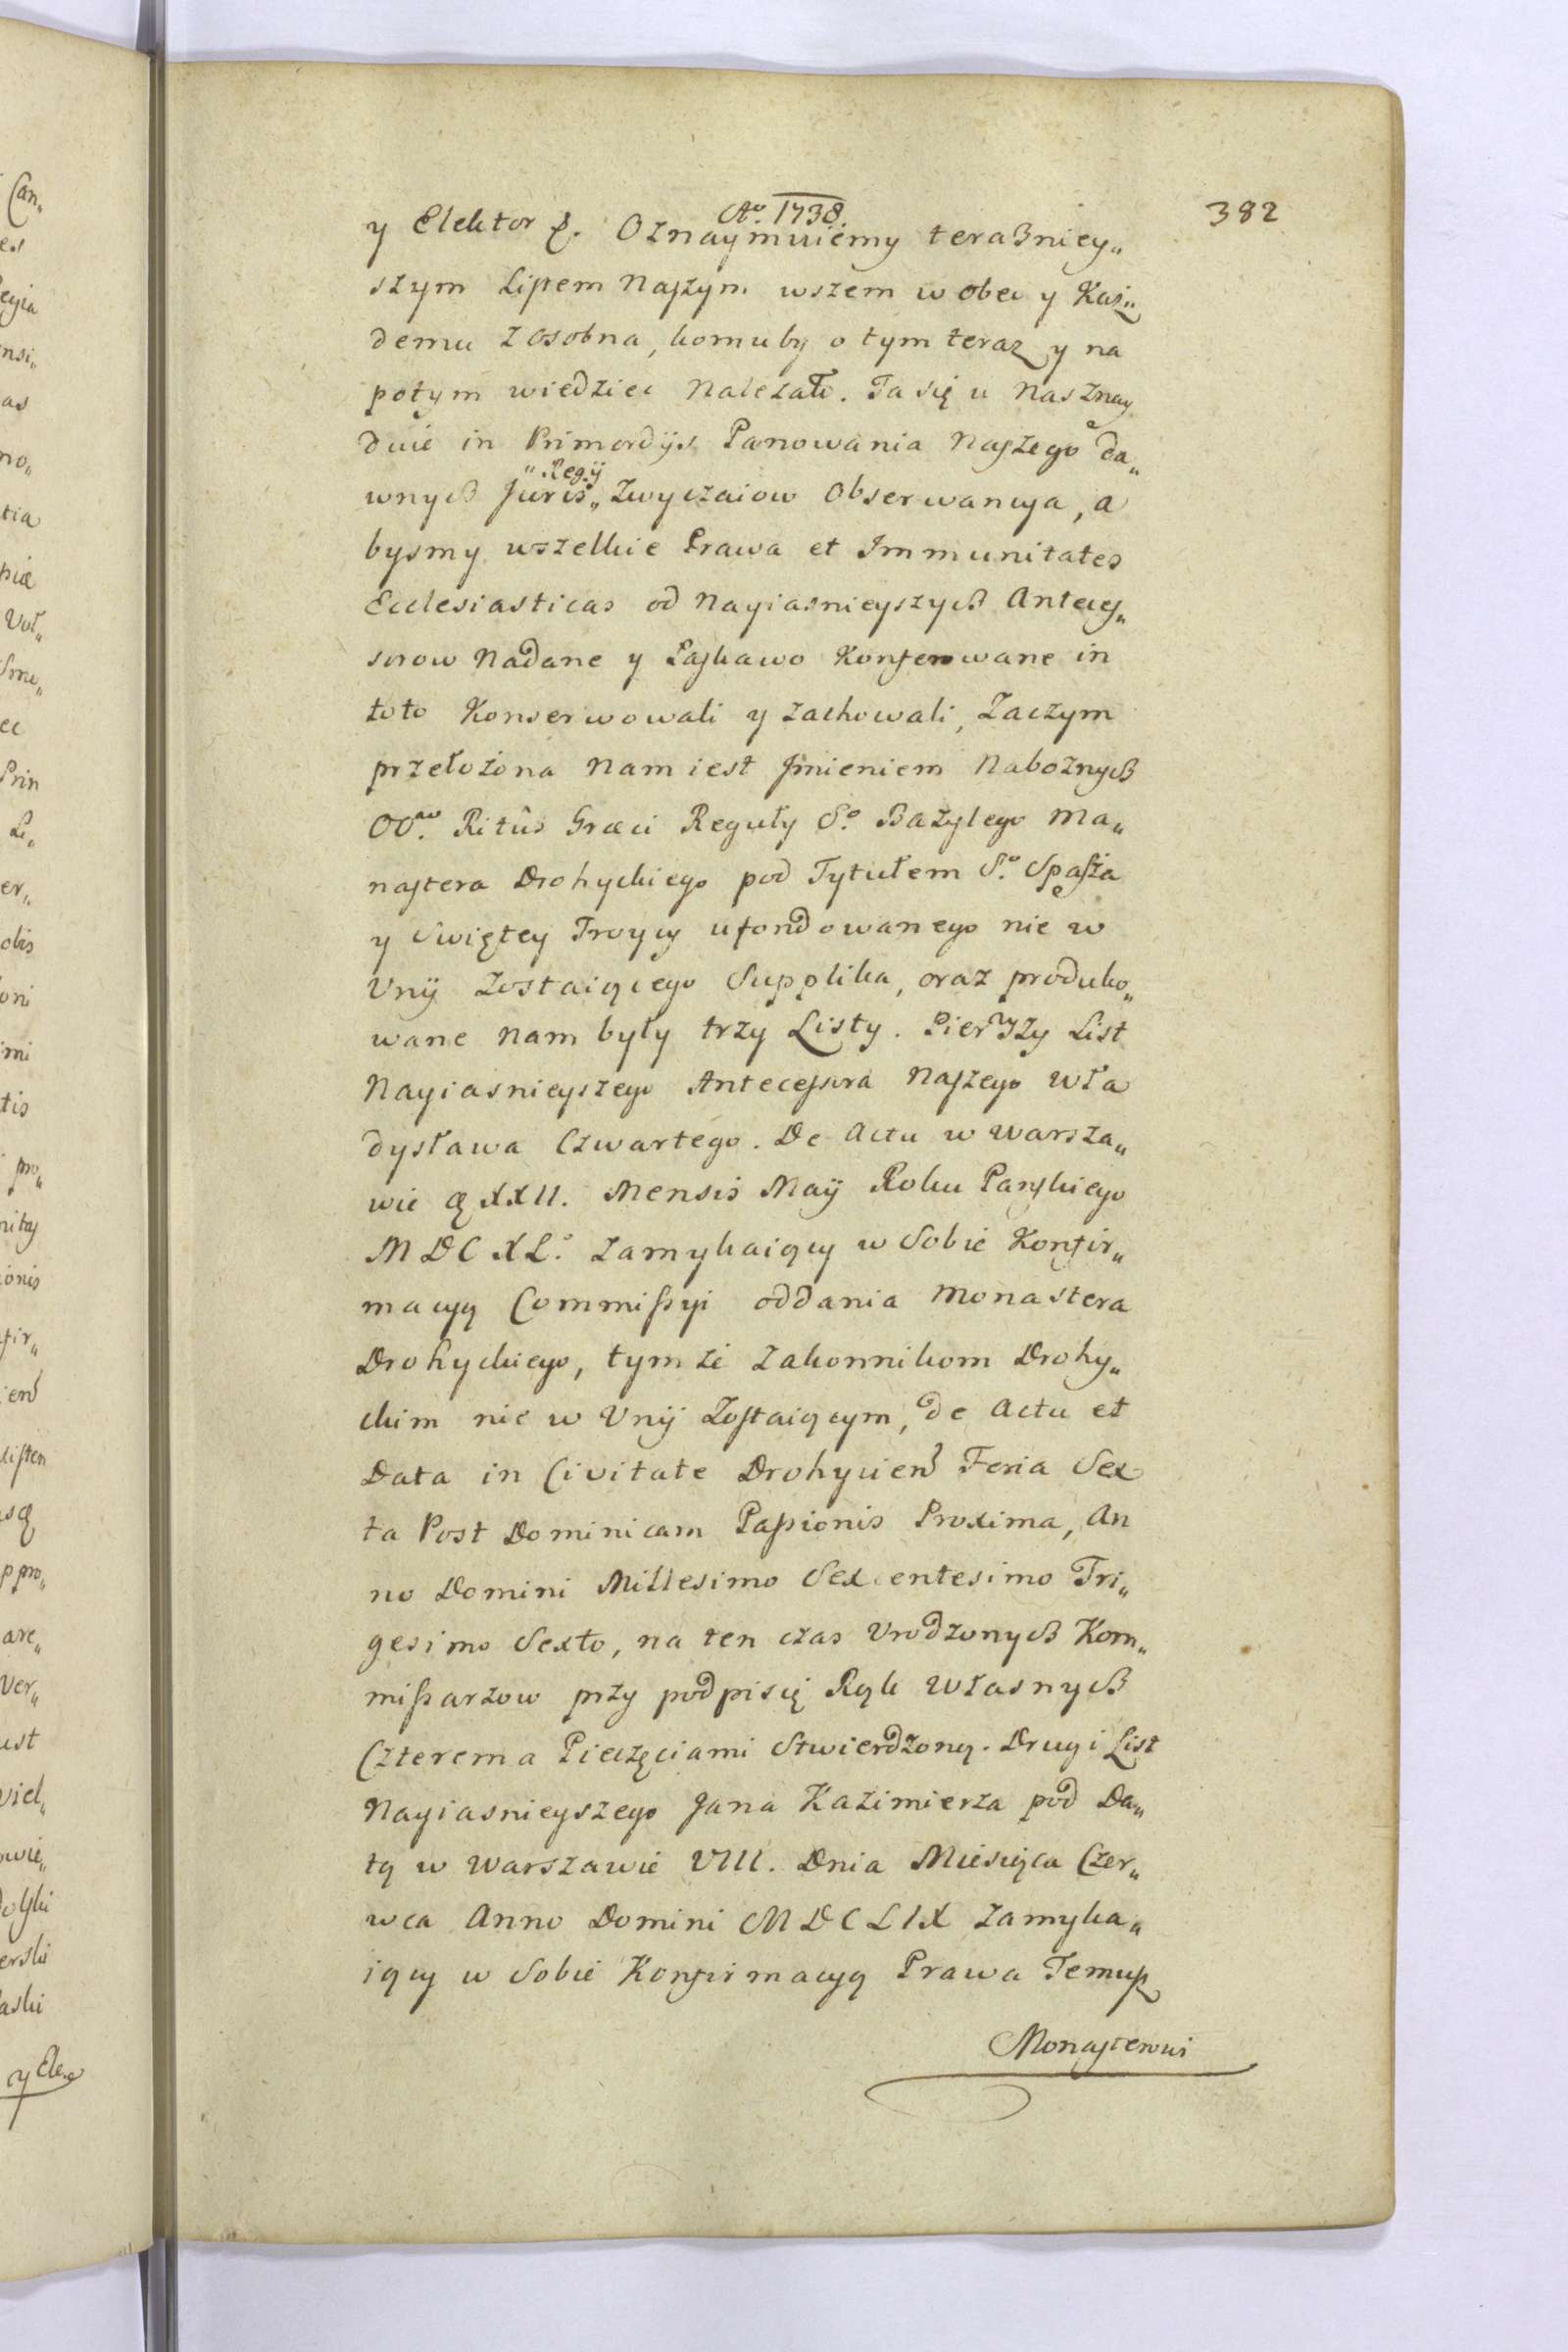 Aº. 1738.
382
y Elektor &. Oznaymuiemy teraßniey„
szym Listem Naszym wszem w obec y Kaz„
demu z osobna, komu by o tym teraz y na
potym wiedziec Nalezało. Ta się u Nas znay
duie in Primordijs Panowania Naszego da„
„Regij
wnych Juris„ Zwyczaiow Obserwancya, a
bysmy wszelkie Prawa et Immunitates
Ecclesiasticas od Nayiasnieyszych Anteces„
sorow Nadane y Łaskawo Konferowane in
toto Konserwowali y zachowali, Zaczym
przełożona Nam iest Jmieniem Naboznych
OO. Ritûs Græci Reguły Sº. Bazylego Ma„
nastera Drohyckiego pod Tytułem Sº. Spassa
y Swiętey Troycy ufondowanego nie w
Vnij Zostaiącego Supplika, oraz produko„
wane Nam były trzy Listy. Pierwszy List
Nayiasnieyszego Antecessora Naszego Wła
dysława Czwartego. De Actu w Warsza„
wie XXII. Mensis Maij Roku Panskiego
MDCXLº. zamykaiący w Sobie Konfir„
macyą Commissyi oddania Monastera
Drohyckiego, tymże Zakonnikom Drohy„
ckim nie w Vnij Zostaiącym, de Actu et
Data in Civitate Drohycien Feria Sex
ta Post Dominicam Passionis Proxima, An
no Domini Millesimo Sexcentesimo Tri„
gesimo Sexto, na ten czas Vrodzonych Kom„
missarzow przy podpisię Rąk Własnych
Czterema Pieczęciami Stwierdzoną. Drugi List
Nayiasnieyszego Jana Kazimierza pod Da„
tą w Warszawie VIII. Dnia Miesięca Czer„
wca Anno Domini MDCLIX zamyka„
iący w Sobie Konfirmacyą Prawa Temusz
Monasterowi
Can„